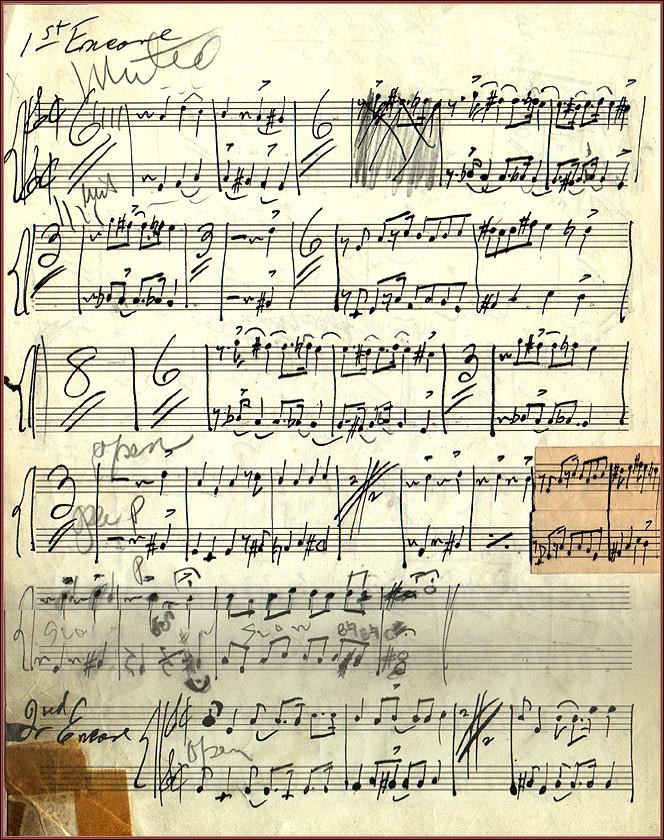 1st Encore
Muted
6 6
mut
3 3 6
8 6 3
open
3 2
open P
P
Slow Slow
2nd
Encore
open
2